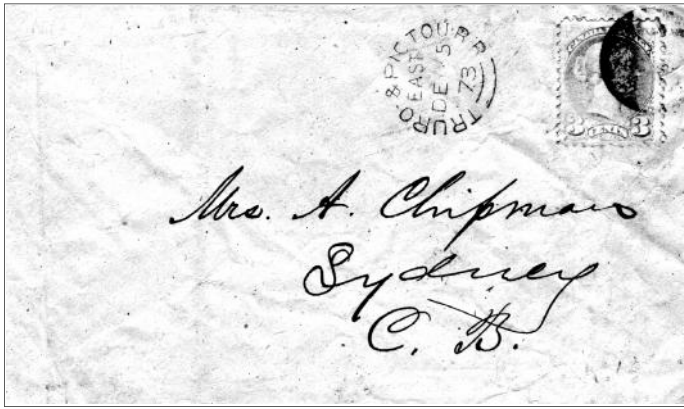 TRURO & PICTOU R.R
EAST
DE 5
73
3 CENTS 3
Mrs. A. Chipman
Sydney
C. B.